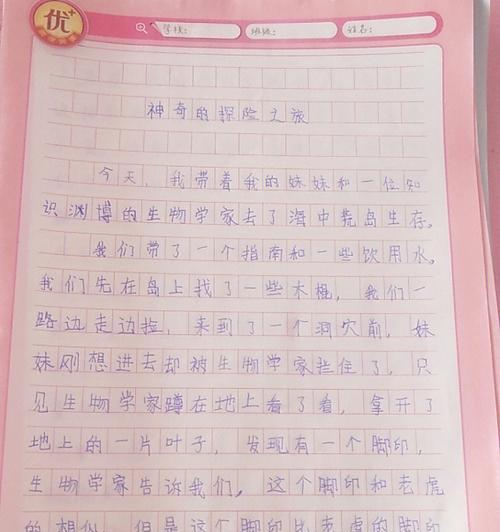 优+
学校： 班级： 姓名：
神奇的探险之旅
今天，我带着我的妹妹和一位知
识渊博的生物学家去了海中荒岛生存。
我们带了一个指南和一些饮用水。
我们先在岛上找了一些木棍，我们一
路边走边捡，来到了一个洞穴前，妹
妹刚想进去却被生物学家拦住了，只
见生物学家蹲在地上看了看，拿开了
地上的一片叶子，发现有一个脚印，
生物学家告诉我们，这个脚印和老虎
的想似，但是这个脚印比老虎的脚印